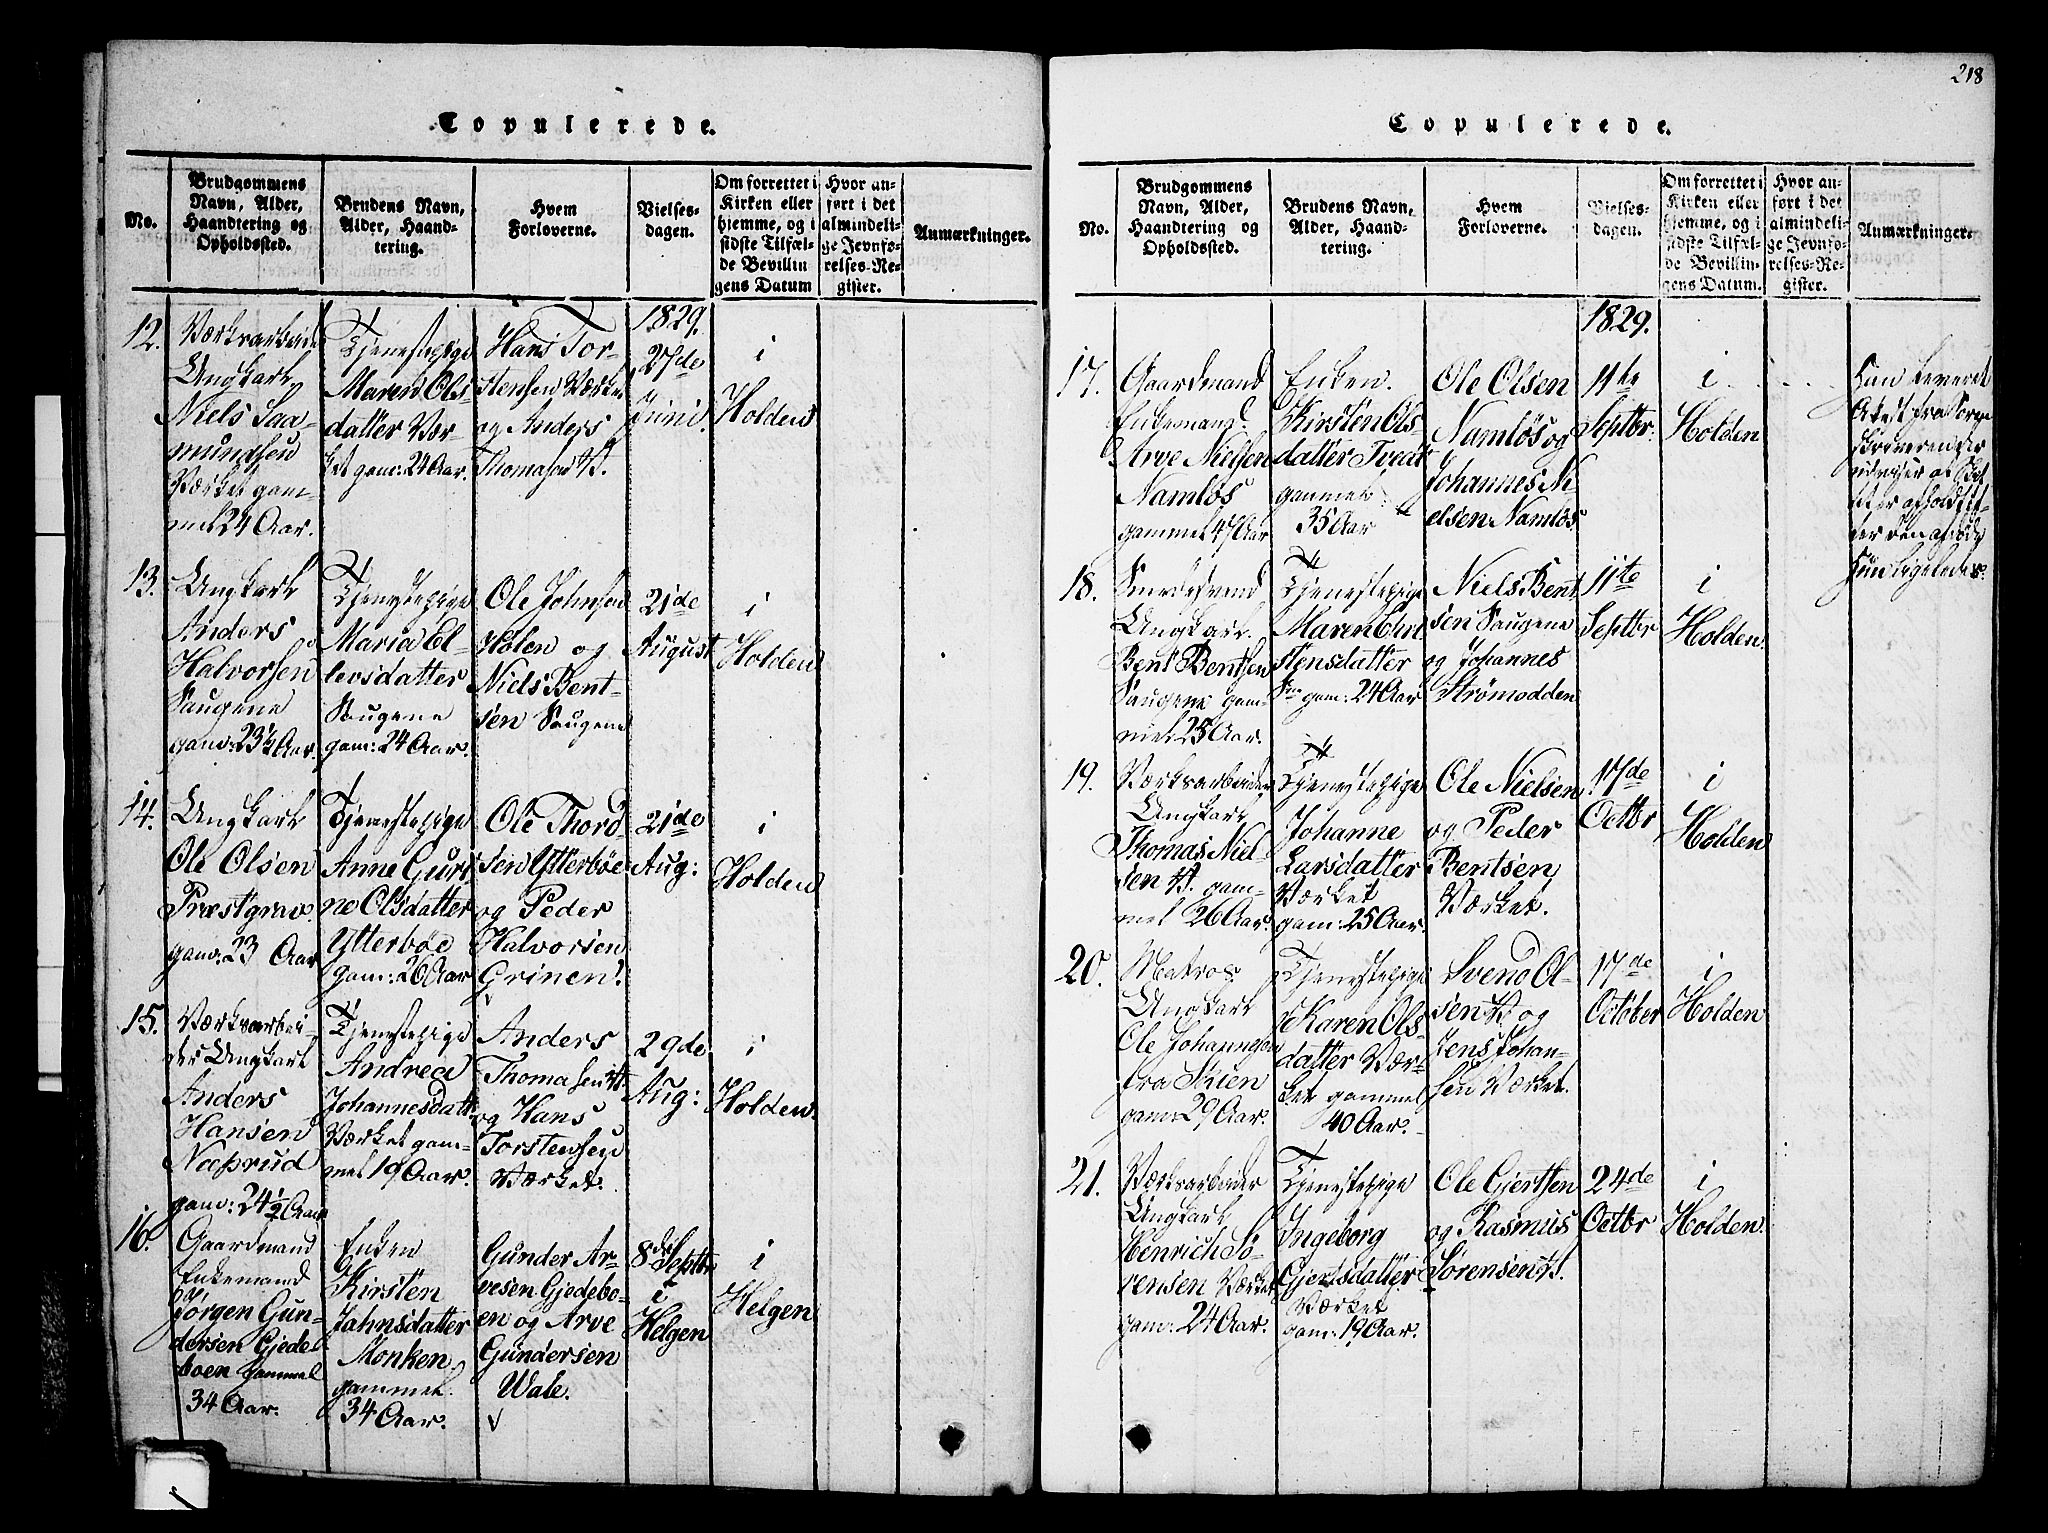 218
Copulerede.
No.
Brudgommens
Navn, Alder,
Haandtering og
Opholdssted.
Brudens Navn,
Alder, Haand-
tering.
Hvem
Forloverne.
Vielses-
dagen.
Om forrettet i
Kirken eller
hjemme, og i
sidste Tilfæl-
de Bevillin
gens Datum
Hvor an-
ført i det
almindeli-
ge Jevnfø-
relses-Re-
gister.
Anmærkninger.
1829.
12.
Værksarbeide
Ungkarl
Niels Saa-
mundsen
Værket gam-
mel 24 Aar.
Tjenestepige
Maren Ols-
datter Vær-
ket gam: 24 Aar.
Hans Tor-
stensen Værket
og Anders
Thomasen V.
27de
Juni.
i
Holden
13.
Ungkarl
Anders
Halvorsen
Saugene
gam: 23½ Aar.
Tjenestepige
Maria El-
levsdatter
Saugene
gam: 24 Aar.
Ole Johnsen
Holen og
Niels Bent-
sen Saugene
21de
August
i
Holden
14.
Ungkarl
Ole Olsen
Præstgrav.
gam: 23 Aar
Tjenestepige
Anne Guri
ne Olsdatter
Ytterbøe
gam: 26 Aar
Ole Thord
sen Ytterbøe
og Peder
Halvorsen
Grinen.
21de
Aug:
i
Holden
15.
Værksarbei-
der Ungkarl
Anders
Hansen
Næsrud
gam: 24½ Aar
Tjenestepige
Andrea
Johannesdatt
Værket gam-
mel 19 Aar.
Anders
Thomasen V.
og Hans
Torstensen
Værket.
29de
Aug:
i
Holden.
16.
Gaardmand
Enkemand
Jørgen Gun-
dersen Gjede
boen gammel
34 Aar.
Enken
Kirsten
Jahnsdatter
Monken
gammel
34 Aar.
Gunder Ar-
vesen Gjedebo-
en og Arve
Gundersen
Wale.
8de Septbr
i
Helgen
i
Helgen
Copulerede.
No.
Brudgommens
Navn, Alder,
Haandtering og
Opholdssted.
Brudens Navn,
Alder, Haand-
tering.
Hvem
Forloverne.
Vielses-
dagen.
Om forrettet i
Kirken eller
hjemme, og i
sidste Tilfæl-
de Bevillin-
gens Datum.
Hvor an-
ført i det
almindeli-
ge Jevnfø-
relses-Re-
gister.
Anmærkninger.
1829.
17.
Gaardmand
Enkemand
Arve Nielsen
Namløs
gammel 47 Aar
Enken.
Kirsten Ols-
datter Tveit
gammel
35 Aar
Ole Olsen
Namløs og
Johannes Ni-
elsen Namløs
11te
Septbr:
i
Holden
Han leveret
Atest fra Soren
skriveren der
udviser at Skif
tet er afholdt ef-
ter den afdøde
Hun ligeledes.
18.
Ungkarl.
Bent Bentsen
Saugene gam-
mel 25 Aar.
Tjenestepige
Maren Chri
stensdatter
gam: 24 Aar
Niels Bent
sen Saugene
og Johannes
Strømodden
11te
Septbr
i
Holden.
19.
Værksarbeider
Ungkarl
Thomas Niel-
sen V. gam-
mel 26 Aar.
Tjenestepige
Johanne
Larsdatter
Værket
gam: 25 Aar.
Ole Nielsen
og Peder
Bentsen
Værket.
17de
Octbr
i
Holden
20.
Matros
Ungkarl
Ole Johannesen
fra Skien
gam: 29 Aar.
Tjenestepige
Karen Ols-
datter Vær-
ket gammel
40 Aar.
Svend Ol-
sen V. og
Jens Johan-
sen Værket.
17de
October
i
Holden
21.
Værksarbeider
Ungkarl
Henrich Sø-
rensen Værket
gam: 24 Aar.
Tjenestepige
Ingeborg
Gjertsdatter
Værket
gam: 19 Aar.
Ole Gjertsen
og Rasmus
Sørensen V.
24de
Octbr
i
Holden.